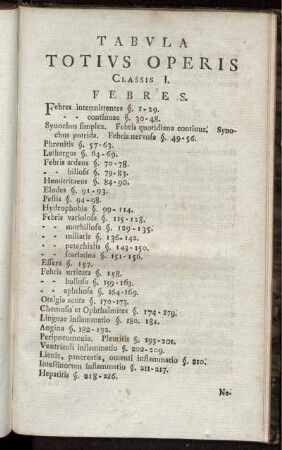 TABVLA
TOTIVS OPERIS
CLASSIS I.
FEBRES.
Febres intermittentes §. 1-29.
- - continuae §. 30-48.
Synochus simplex. Febris quotidiana continua. Syno-
chus putrida. Febris nervosa §. 49-56.
Phrenitis §. 57-63.
Lethargus §. 64-69.
Febris ardens §. 70-78.
- - biliosa §. 79-83.
Hemitritaeus §. 84-90.
Elodes §. 91-93.
Pestis §. 94-98.
Hydrophobia §. 99-114.
Febris variolosa §. 115-128.
- - morbillosa §. 129-135.
- - miliaris §. 136-142.
- - petechialis §. 143-150.
- - scarlatina §. 151-156.
Essera §. 157.
Febris urticata §. 158.
- - bullosa §. 159-163.
- - aphthosa §. 164-169.
Otalgia acuta §. 170-173.
Chemosis et Ophthalmites §. 174-179.
Linguae inflammatio §. 180. 181.
Angina §. 182-192.
Peripneumonia. Pleuritis §. 193-201.
Ventriculi inflammatio §. 202-209.
Lienis, pancreatis, omenti inflammatio §. 210.
Intestinorum inflammatio §. 211-217.
Hepatitis §. 218-226.
Ne-